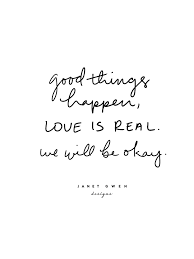 good things
happen,
LOVE IS REAL.
we will be okay.
JANET GWEN
designs